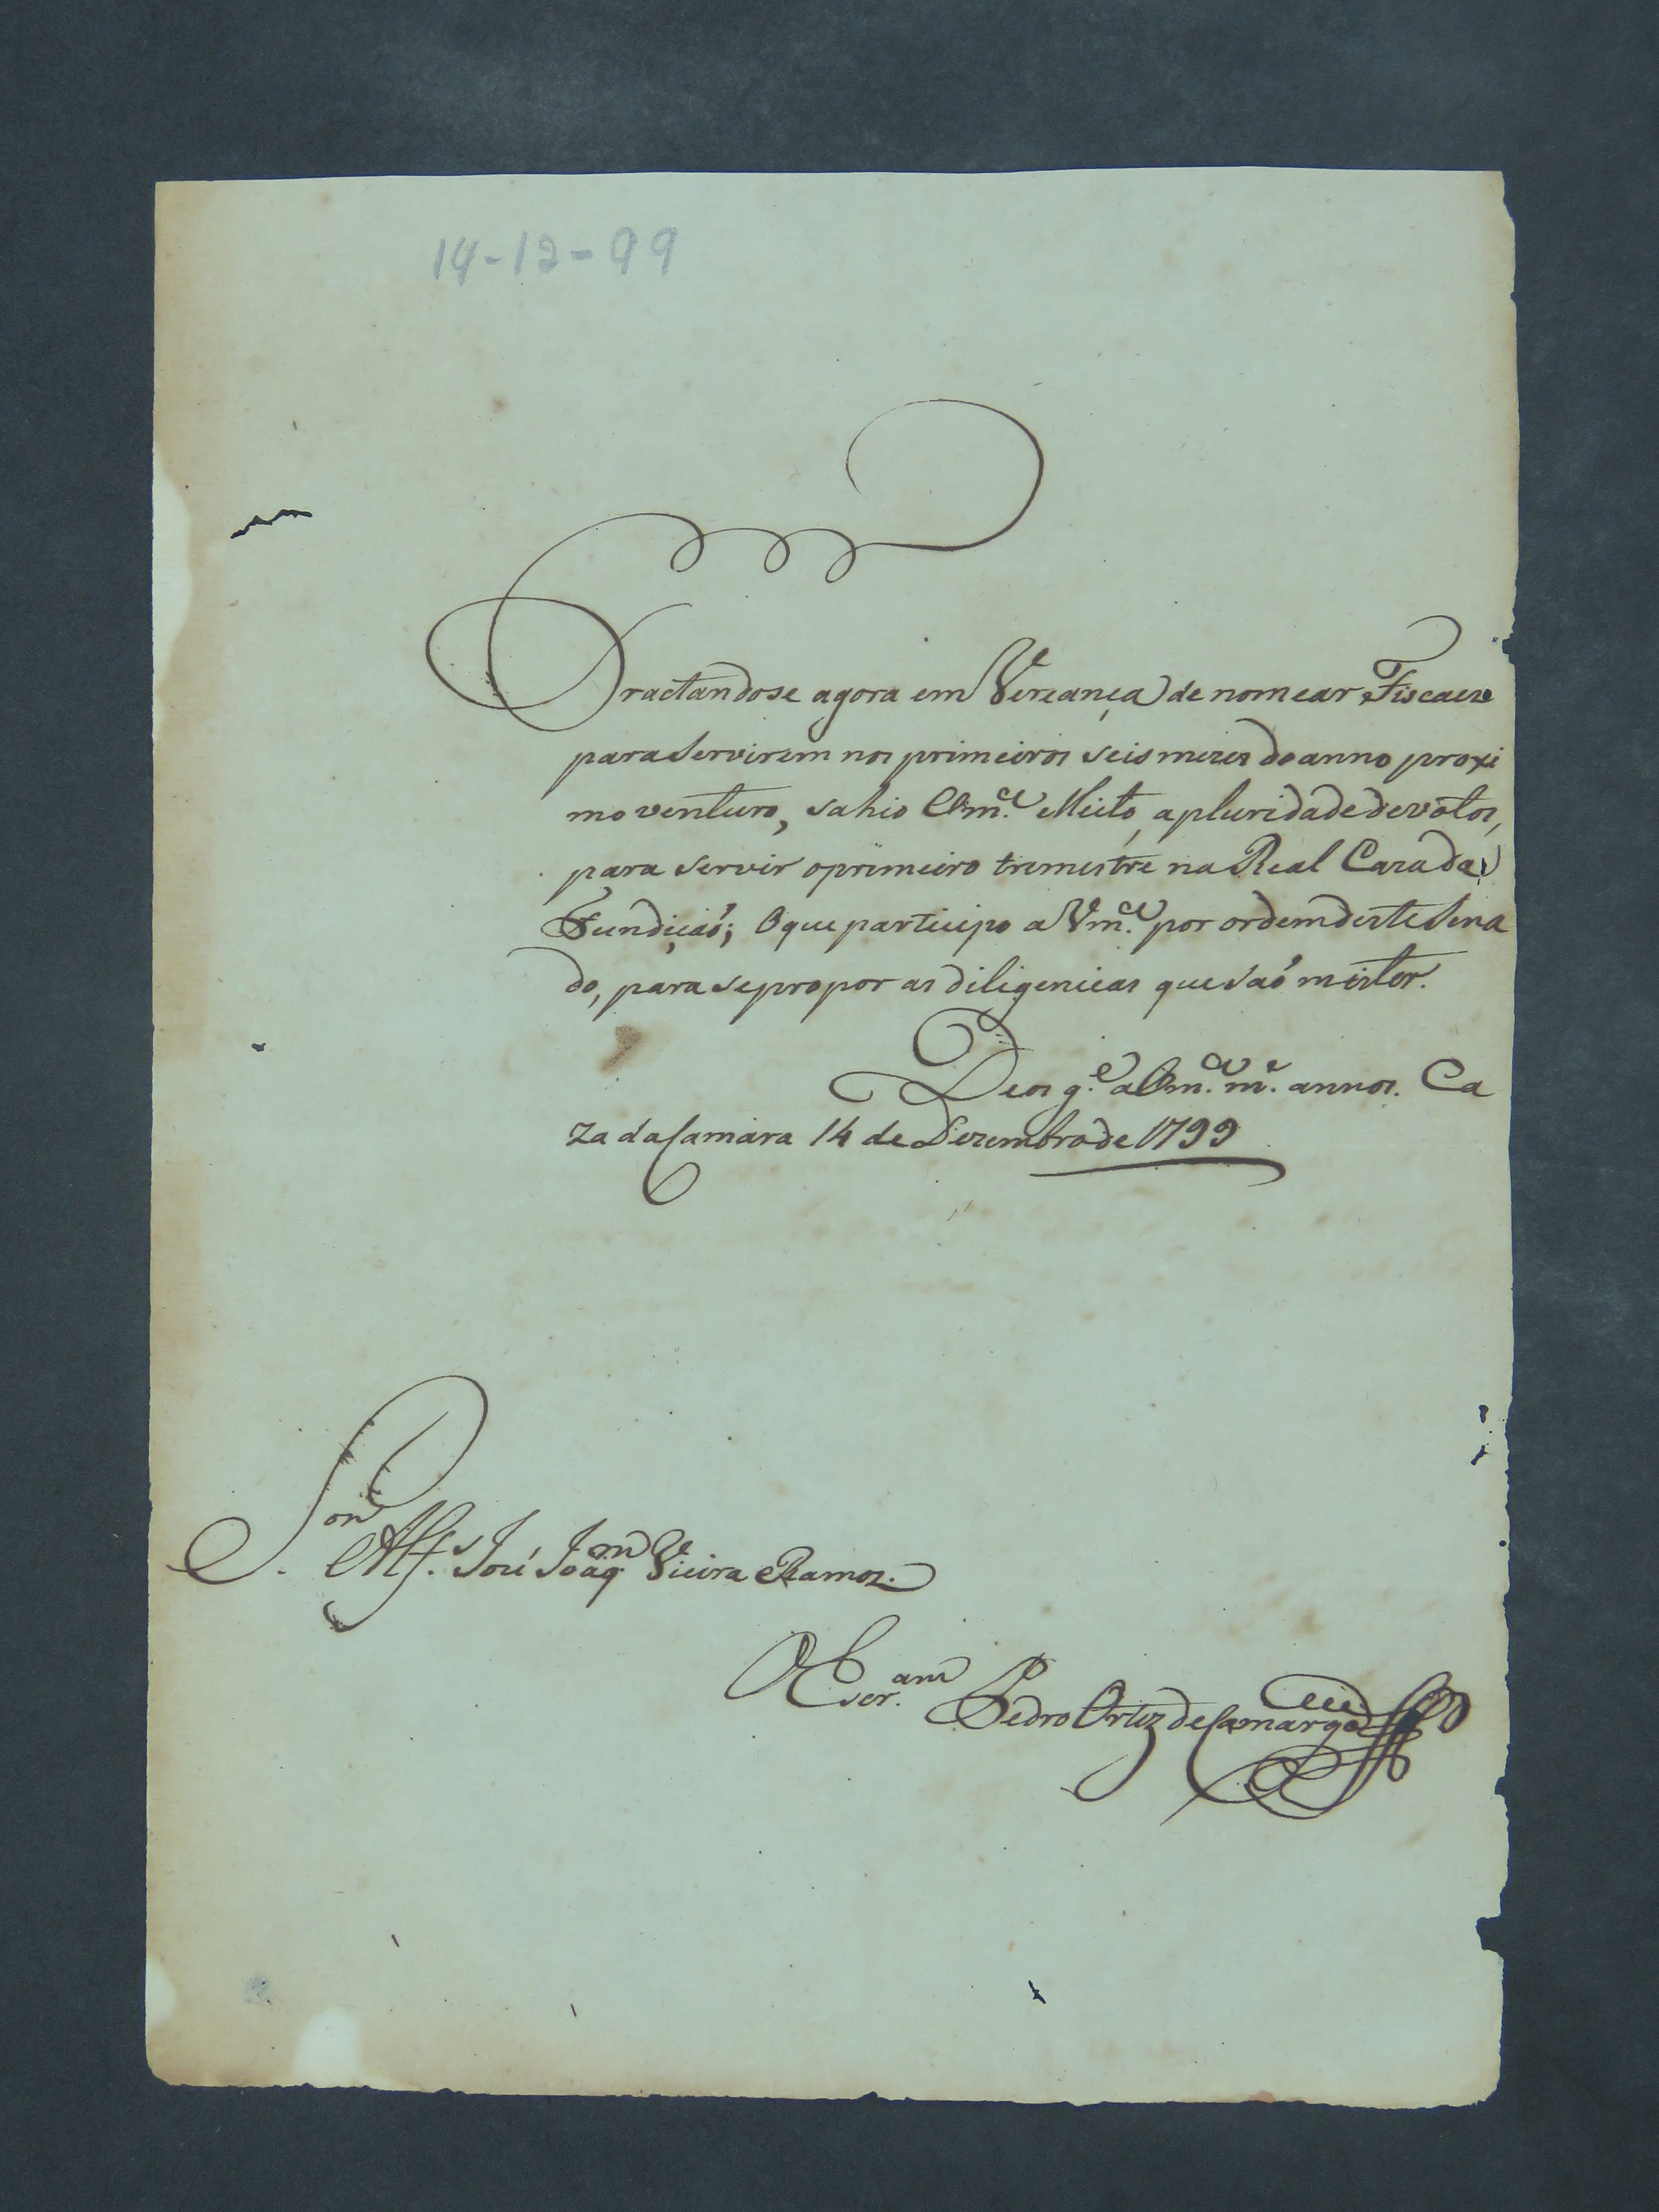 14-12-99
Tractandose agora em Vereança de nomear Fiscaes
para servirem nos primeiros seis mezes do anno proxi
mo venturo, sahio Vm.ce Eleito, a pluridade de votos,
para servir o primeiro trimestre na Real Caza da
Fundiçaó; O que participo a Vm.ce por ordem deste Sena
do, para se propor as diligencias que saó mister.
Deos g.e a Vm.ce m.s annos. Ca
za da Camara 14 de Dezembro de 1799
Snr
Alf. José Joaqm Vieira Ramos.
O Escr.am Pedro Ortiz de Camargo